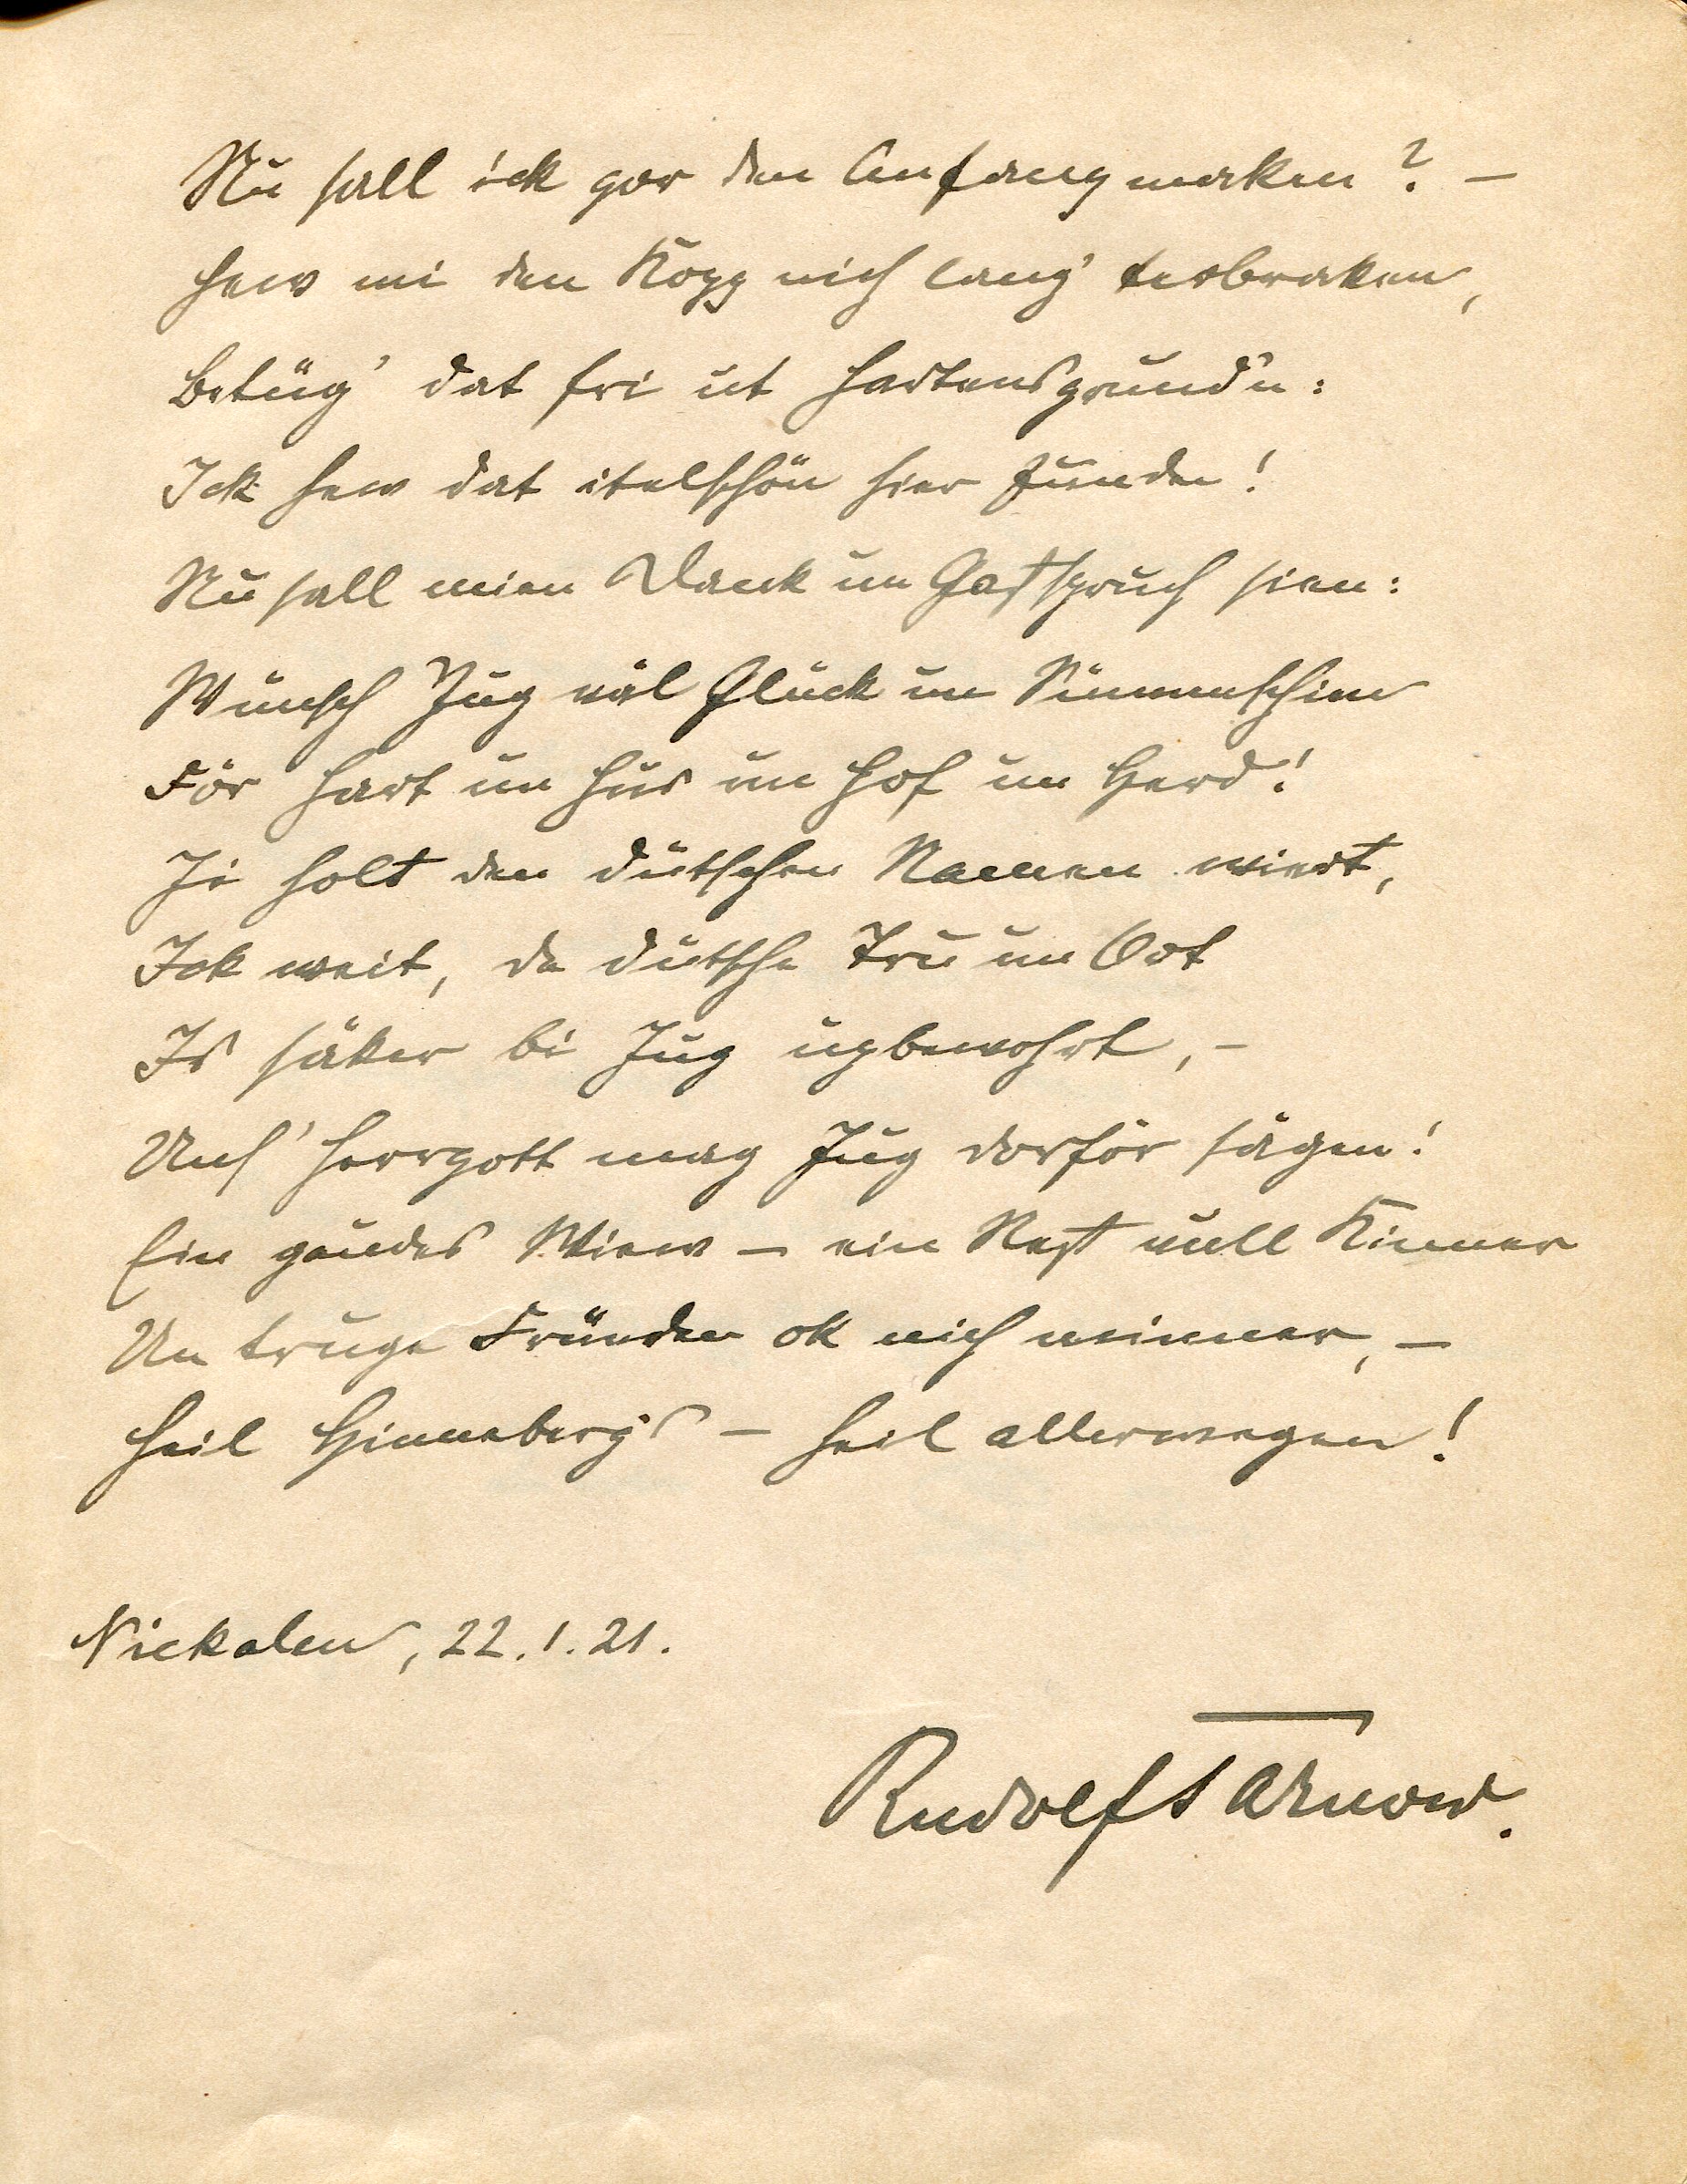 Nu sall ick gor den Anfang maken? –
Hew mi den Kopp nich lang' terbraken,
Betüg' dat fri ut Hartensgrund'n:
Ick hew dat itelschön hier funden!
Nu sall mien Dank un Gastspruch sien:
Wünsch Jug väl Glück un Sünnenschien
För Hart un Hus un Hof un Herd!
Ji holt den dütschen Namen wiert,
Ick weit, de dütsche Tru un Oort
Is säker bi Jug upbewohrt, –
Uns' Herrgott mag Jug dorför sägen!
Ein gaudes Wiew – ein Nest vull Kinner
Un truge Fründen ok nich minner, –
Heil Hinneberg's – Heil allerwegen!
Niekalen, 22.1.21.
Rudolf Tarnow.